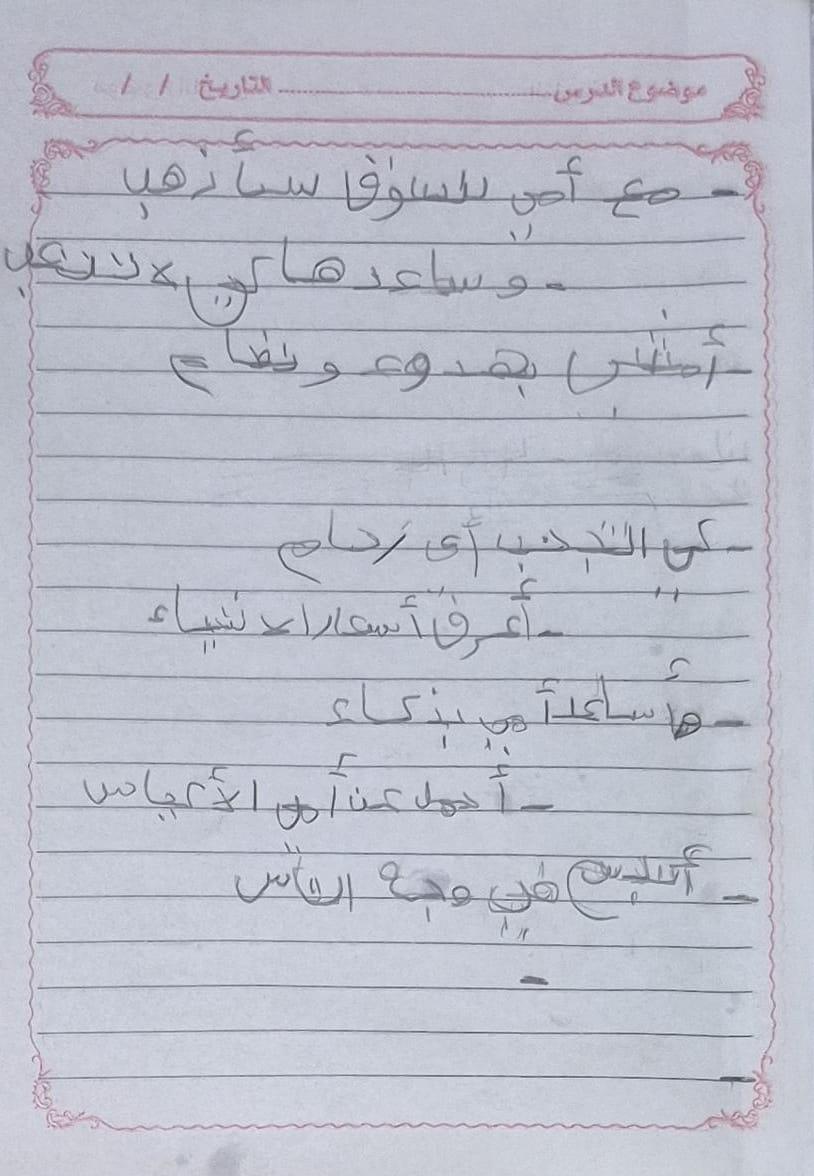 موضوع الدرس ........................ التاريخ / /
- مع أمي للسوق سأذهب
- وساعدها كي لا تتعب
- أمشي بهدوء ونظام
- كي اتجنب أي زحام
- أعرف أسعار الاشياء
- وأساعد أمي بذكاء
- أحمل عن أمي الأكياس
- أبتسم في وجه الناس
-
-